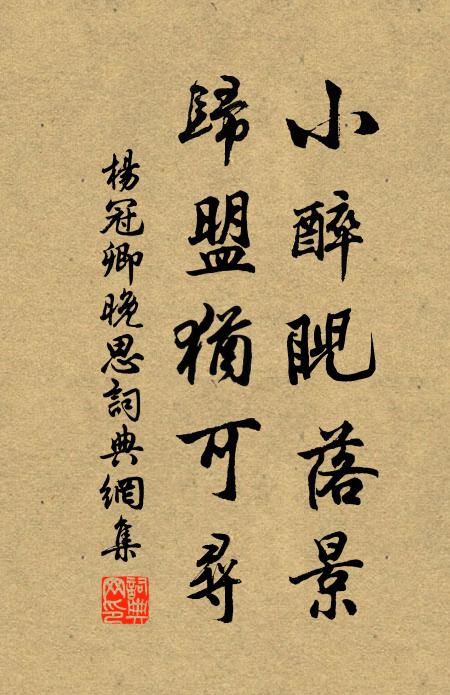 小醉睨落景
歸盟猶可尋
楊冠卿晚思詞典網集
詞典
网印